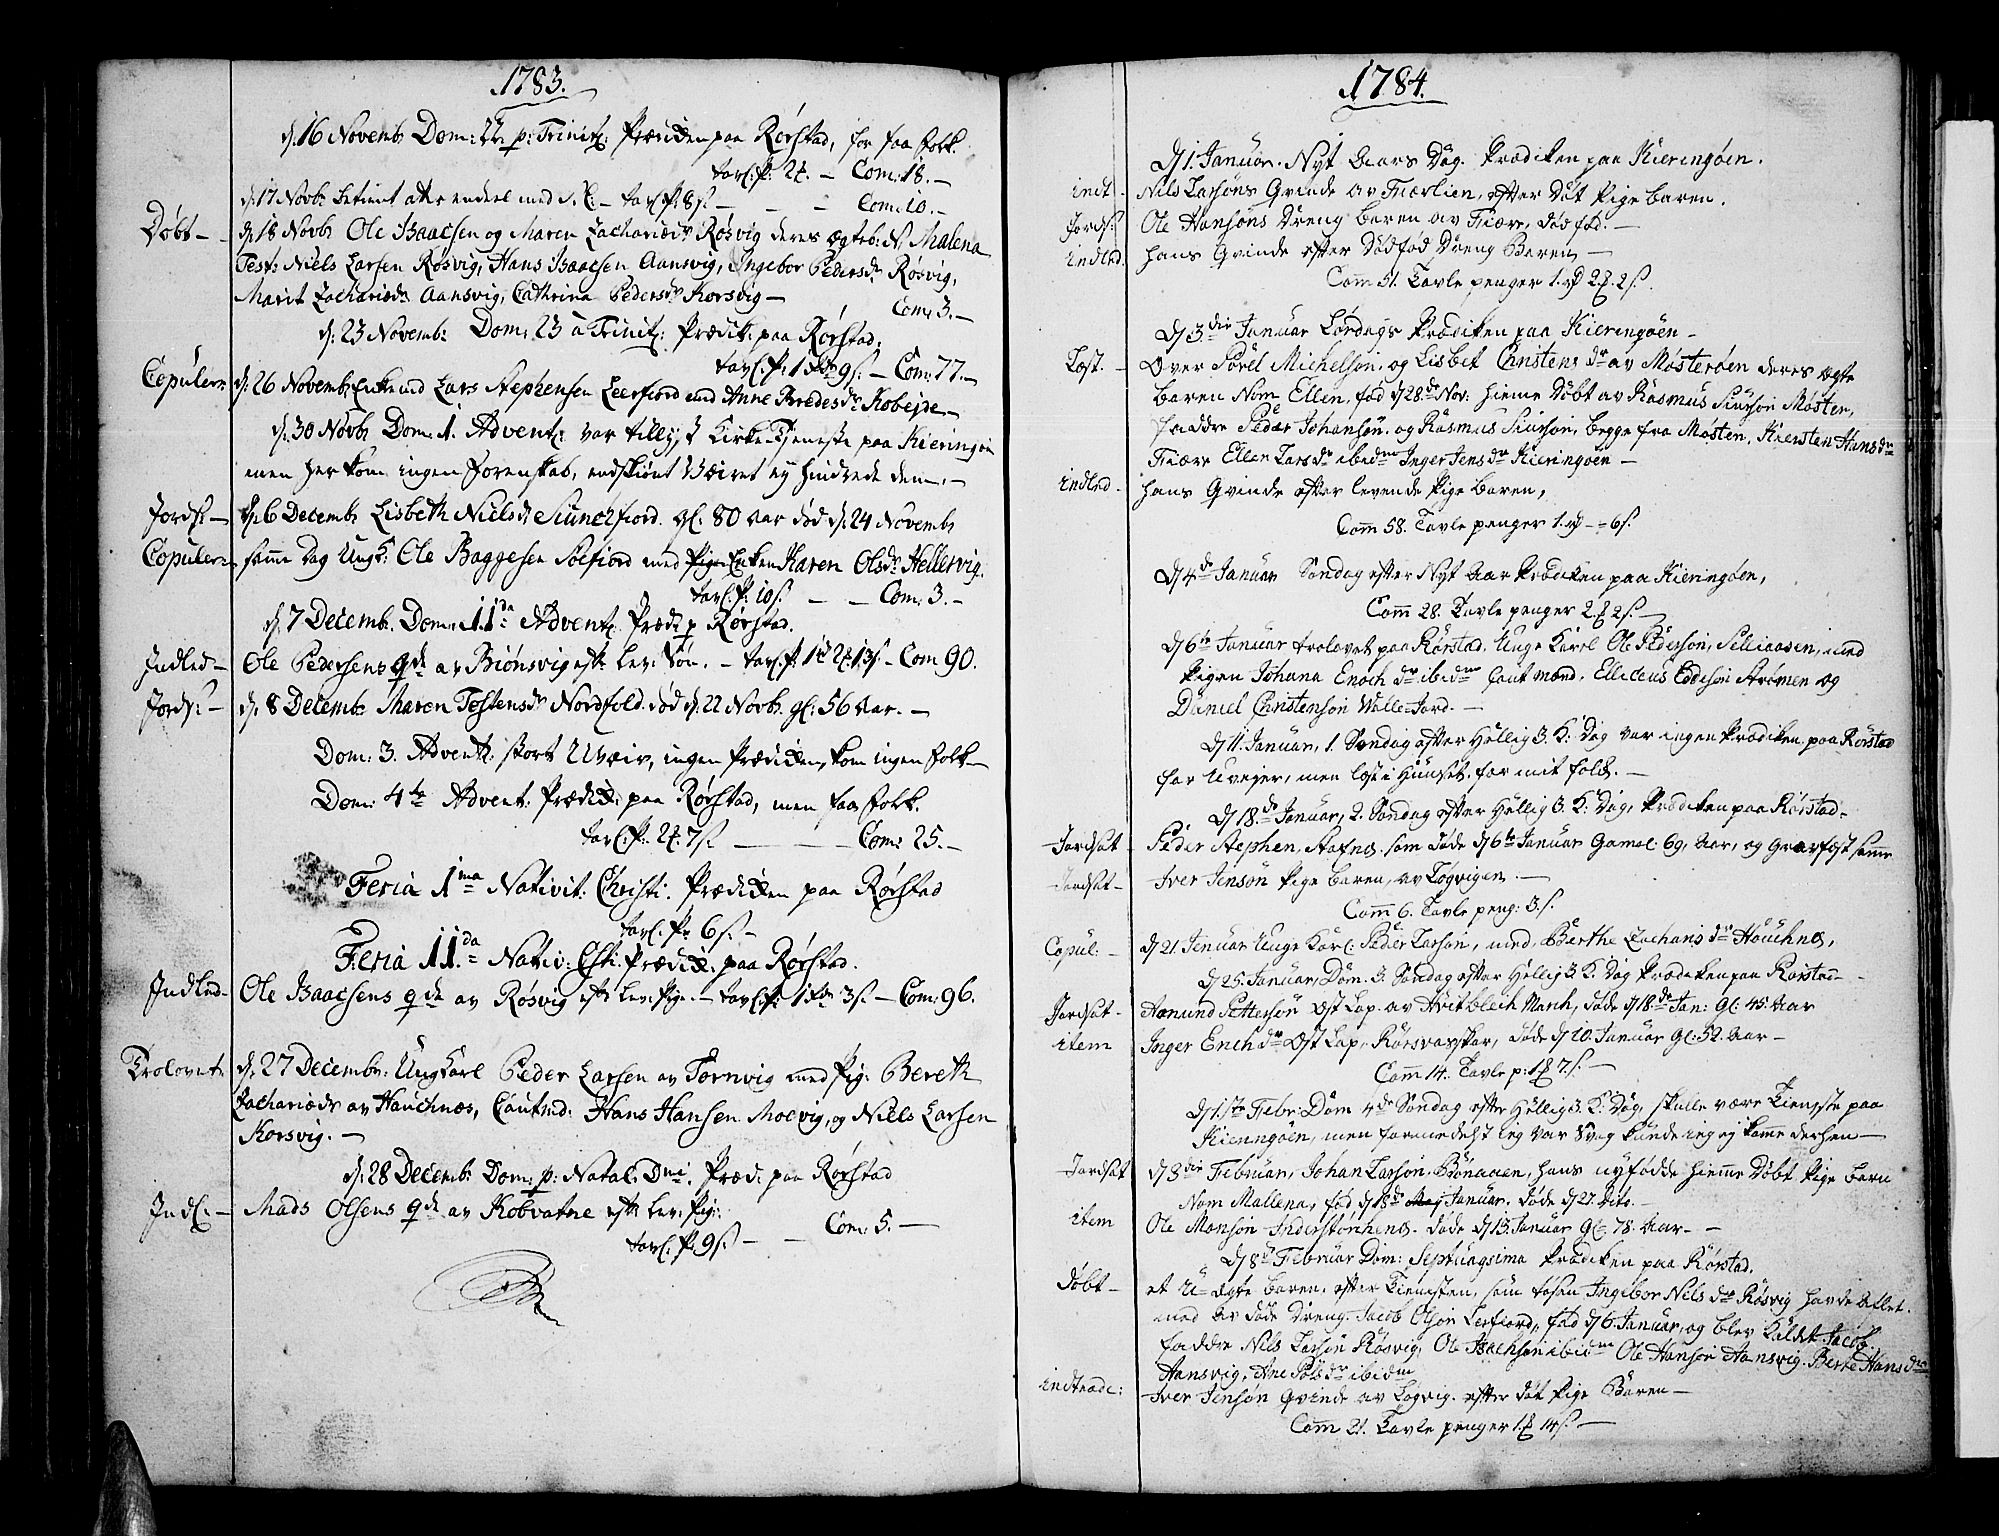 1783.
d. 16 Novemb: Dom: 22 p: Trinit: Prædiken paa Rørstad, for faa Folk.
Tavl: P: 2 . — Com: 18. —
d. 17 Novb: betient med S. C: — Tavl: P: 8 s. — — Com: 10. —
Døbt — d. 18 Novb: Ole Isaacsen og Maren Zachariæd: Røsvig deres ægteb: N: Malena
Test: Niels Larsen Røsvig, Hans Isaacsen Aansvig, Ingebor Pedersd: Røsvig,
Marit Zachariæd: Aansvig, Cathrina Pedersd: Korsvig — Com: 3. —
d: 23 Novemb: Dom: 23 à Trinit: Prædik: paa Rørstad.
Tavl: P: 1 9 s. — Com: 77. —
Copuleret d. 26 Novemb: Enkemd Lars Stephensen Leerfiord med Anne Bredesd: Kobejde —
d. 30 Novb: Dom: 1. Advent: var tillyst Kirke-Tieneste paa Kieringøe
men her kom ingen forsamling, endskiønt Væiret ey hindrede dem. —
Jords: — d. 6 Decemb: Lisbeth Nielsd: gl: 80 Aar død d. 24 Novemb:
Copuler: samme Dag Ungk: Ole Baggesen Sørfiord med Enken Karen Olsd: Hellervig.
Tavl: P: 10 s. — — Com: 3. —
d. 7 Decemb: Dom: 11da Advent: Præd: p Rørstad.
Indled — Ole Pedersens qde av Biønsvig eft: lev: Søn. — Tavl: P: 1 2 13 s — Com 90.
Jords: — d. 8 Decemb: Maren Tostensd: Nordfold. død d. 22 Novb: gl: 56 Aar. —
Dom: 3. Advent: stort Uvæir, ingen Prædiken, kom ingen Folk —
Dom: 4te Advent: Prædik: paa Rørstad, men faa Folk.
Tavl: P: 2 7 s. — — Com: 25. —
Feria 1ma Nativit: Christi: Prædiken paa Rørstad
Tavl: P: 6 s. —
Feria 11da Nativ: Chti: Prædik: paa Rørstad.
Indled — Ole Isaacsens qde av Røsvig eft: lev: Pige. — Tavl: P: 1 3 s. — Com: 96.
Trolovet: d. 27 Decemb: Ungkarl Peder Larsen av Tørnvig med Pig: Bereth
Zachariæd: av Hauchnæs, Cautmd: Hans Hansen Moevig, og Niels Larsen
Korsvig. —
d. 28 Decemb: Dom: p: Natal: Dmi: Præd: paa Rørstad
Indl: — Mads Olsens qde av Kobvatne eft: lev: Pig:
Com: 5. —
Tavl: P: 9 s. — —
1784.
d 1. Januar. Nyt Aars Dag. Prædiken paa Kieringøen.
indt — Nils Larsøns Qvinde av Fiærlien, efter Døt Pige Baren.
Jords: Ole Hansøns Dreng Baren av Fiære, død fød. —
indled. hans Qvinde efter Død fød Dreng Baren —
Com 51. Tavle penger 1. rd 2 2 s.
d 3die Januar Lørdags Prædiken paa Kieringøen —
Løst. — Over Sørel Michelsøn, og Lisbet Christens dr av Møsterøen deres ægte
Baren Nom Ellen, fød d 28de Nov: hieme Døbt av Rasmus Siursøn Møsten,
faddre Peder Johansøn, og Rasmus Siursøn, begge fra Møsten, Kiersten Hans dr
Fiære Ellen Lars dr ibidm Inger Jens dr Kieringøen —
indled — hans Qvinde efter levende Pige Baren,
Com 58. Tavle penger 1. rd — 6 s.
d 4de Januar Søndag efter Nyt Aar Prædiken paa Kieringøen,
Com 28. Tavle penger 2 2 s. —
d 6te Januar trolovet paa Rørstad. Unge Karl Ole Pedersøn, Selliaasen, med
Pigen Johana Enoch dr ibidm Caut mænd. Ellideus Eddesøn Strømen og
Daniel Christensøn Walle-Jord. —
d 11. Januar, 1. Søndag efter Hellig 3. K: Dag var ingen Prædiken paa Rørstad
for Uvejer, men løst i Huuset for mit folk. —
d 18.de Januar, 2. Søndag efter Hellig 3. K: Dag, Prædiken paa Rørstad —
Jordsat — Peder Stephen, som døde d 6te Januar Gamel 69 Aar, og Gravfæst samme
Jordsat — Iver Jensøn Pige Baren, av Løgvigen —
Com 6. Tavle peng: 3. s.
Copul: — d 21 Januar Unge Karl: Peder Larsøn, med Berthe Zacharis dr Houchnes,
d 25. Januar, Dom. 3. Søndag efter Hellig 3 K: Dag Prædiken paa Rørstad —
Jordsat — Aamund Pettersøn Øst Lap. av Hvitblich March, døde d 18de Jan: gl: 45 Aar
item Inger Erich dr Øst Lap, Rørsvarskar, døde d 20. Januar gl: 52. Aar —
Com 14. Tavle p: 1 7 s. —
d 1ste Febr: Dom 4de Søndag efter Hellig 3. K: Dag, skulle være Tieneste paa
Kieringøen, men formedelst ieg var Svag kunde ieg ej kome derhen —
Jordsat d 3die Februar, Johan Larsøn, Bønaaen, hans nyfødde hieme Døbt Pige Barn
Nom Mallena, fød d 18de Januar. døde d 27 dito. —
item Ole Monsøn Inderstørichenes. døde d 13 Januar gl: 78. Aar — —
d 8de Februar Dom: Septuagsima Prædiken paa Rørstad.
døbt — et U-ægte Baren, efter Tienesten, som tøsen Ingebor Nils dr Røsvig havde Avlet.
med av døde Dreng. Jacob Olsøn Lerfiord, fød d 6 Januar, og blev kaldet Jacob,
faddre Nils Larsøn Røsvig, Ole Isachsøn ibidm Ole Hansøn Aansvig. Berte Hans dr
Aansvig, Ane Pols dr ibidm
indtrade: Iver Jensøn Qvinde av Løgvig. efter døt Pige Baren —
Com 21. Tavle penger 1 14 s. —